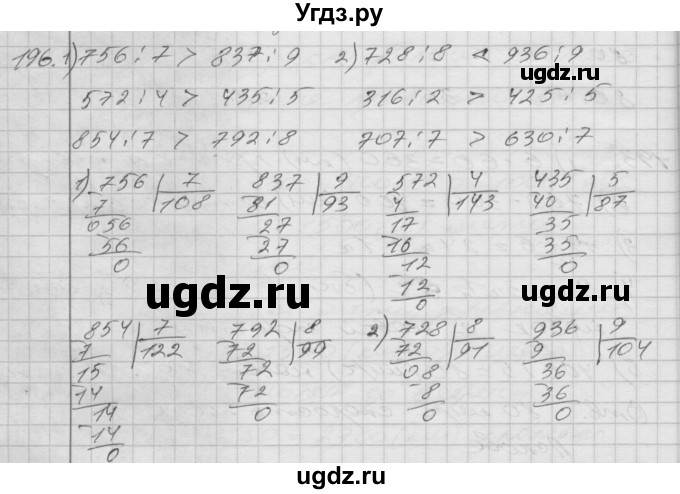 Угдз.ру
196. 1) 756 : 7 > 837 : 9   2) 728 : 8 < 936 : 9
ugdz.ru
572 : 4 > 435 : 5   316 : 2 > 425 : 5
854 : 7 > 792 : 8   707 : 7 > 630 : 7
1) 756 | 7   837 | 9   572 | 4   435 | 5
7 108   81 93   4 143   40 87
056   27   17   35
56   27   16   35
0   0   12   0
12
0
ugdz.ru
ugdz.ru
854 | 7   792 | 8   2) 728 | 8   936 | 9
7 122   72 99   72 91   9 104
15   72   08   36
14   72   8   36
14   0   0   0
14
0
ugdz.ru